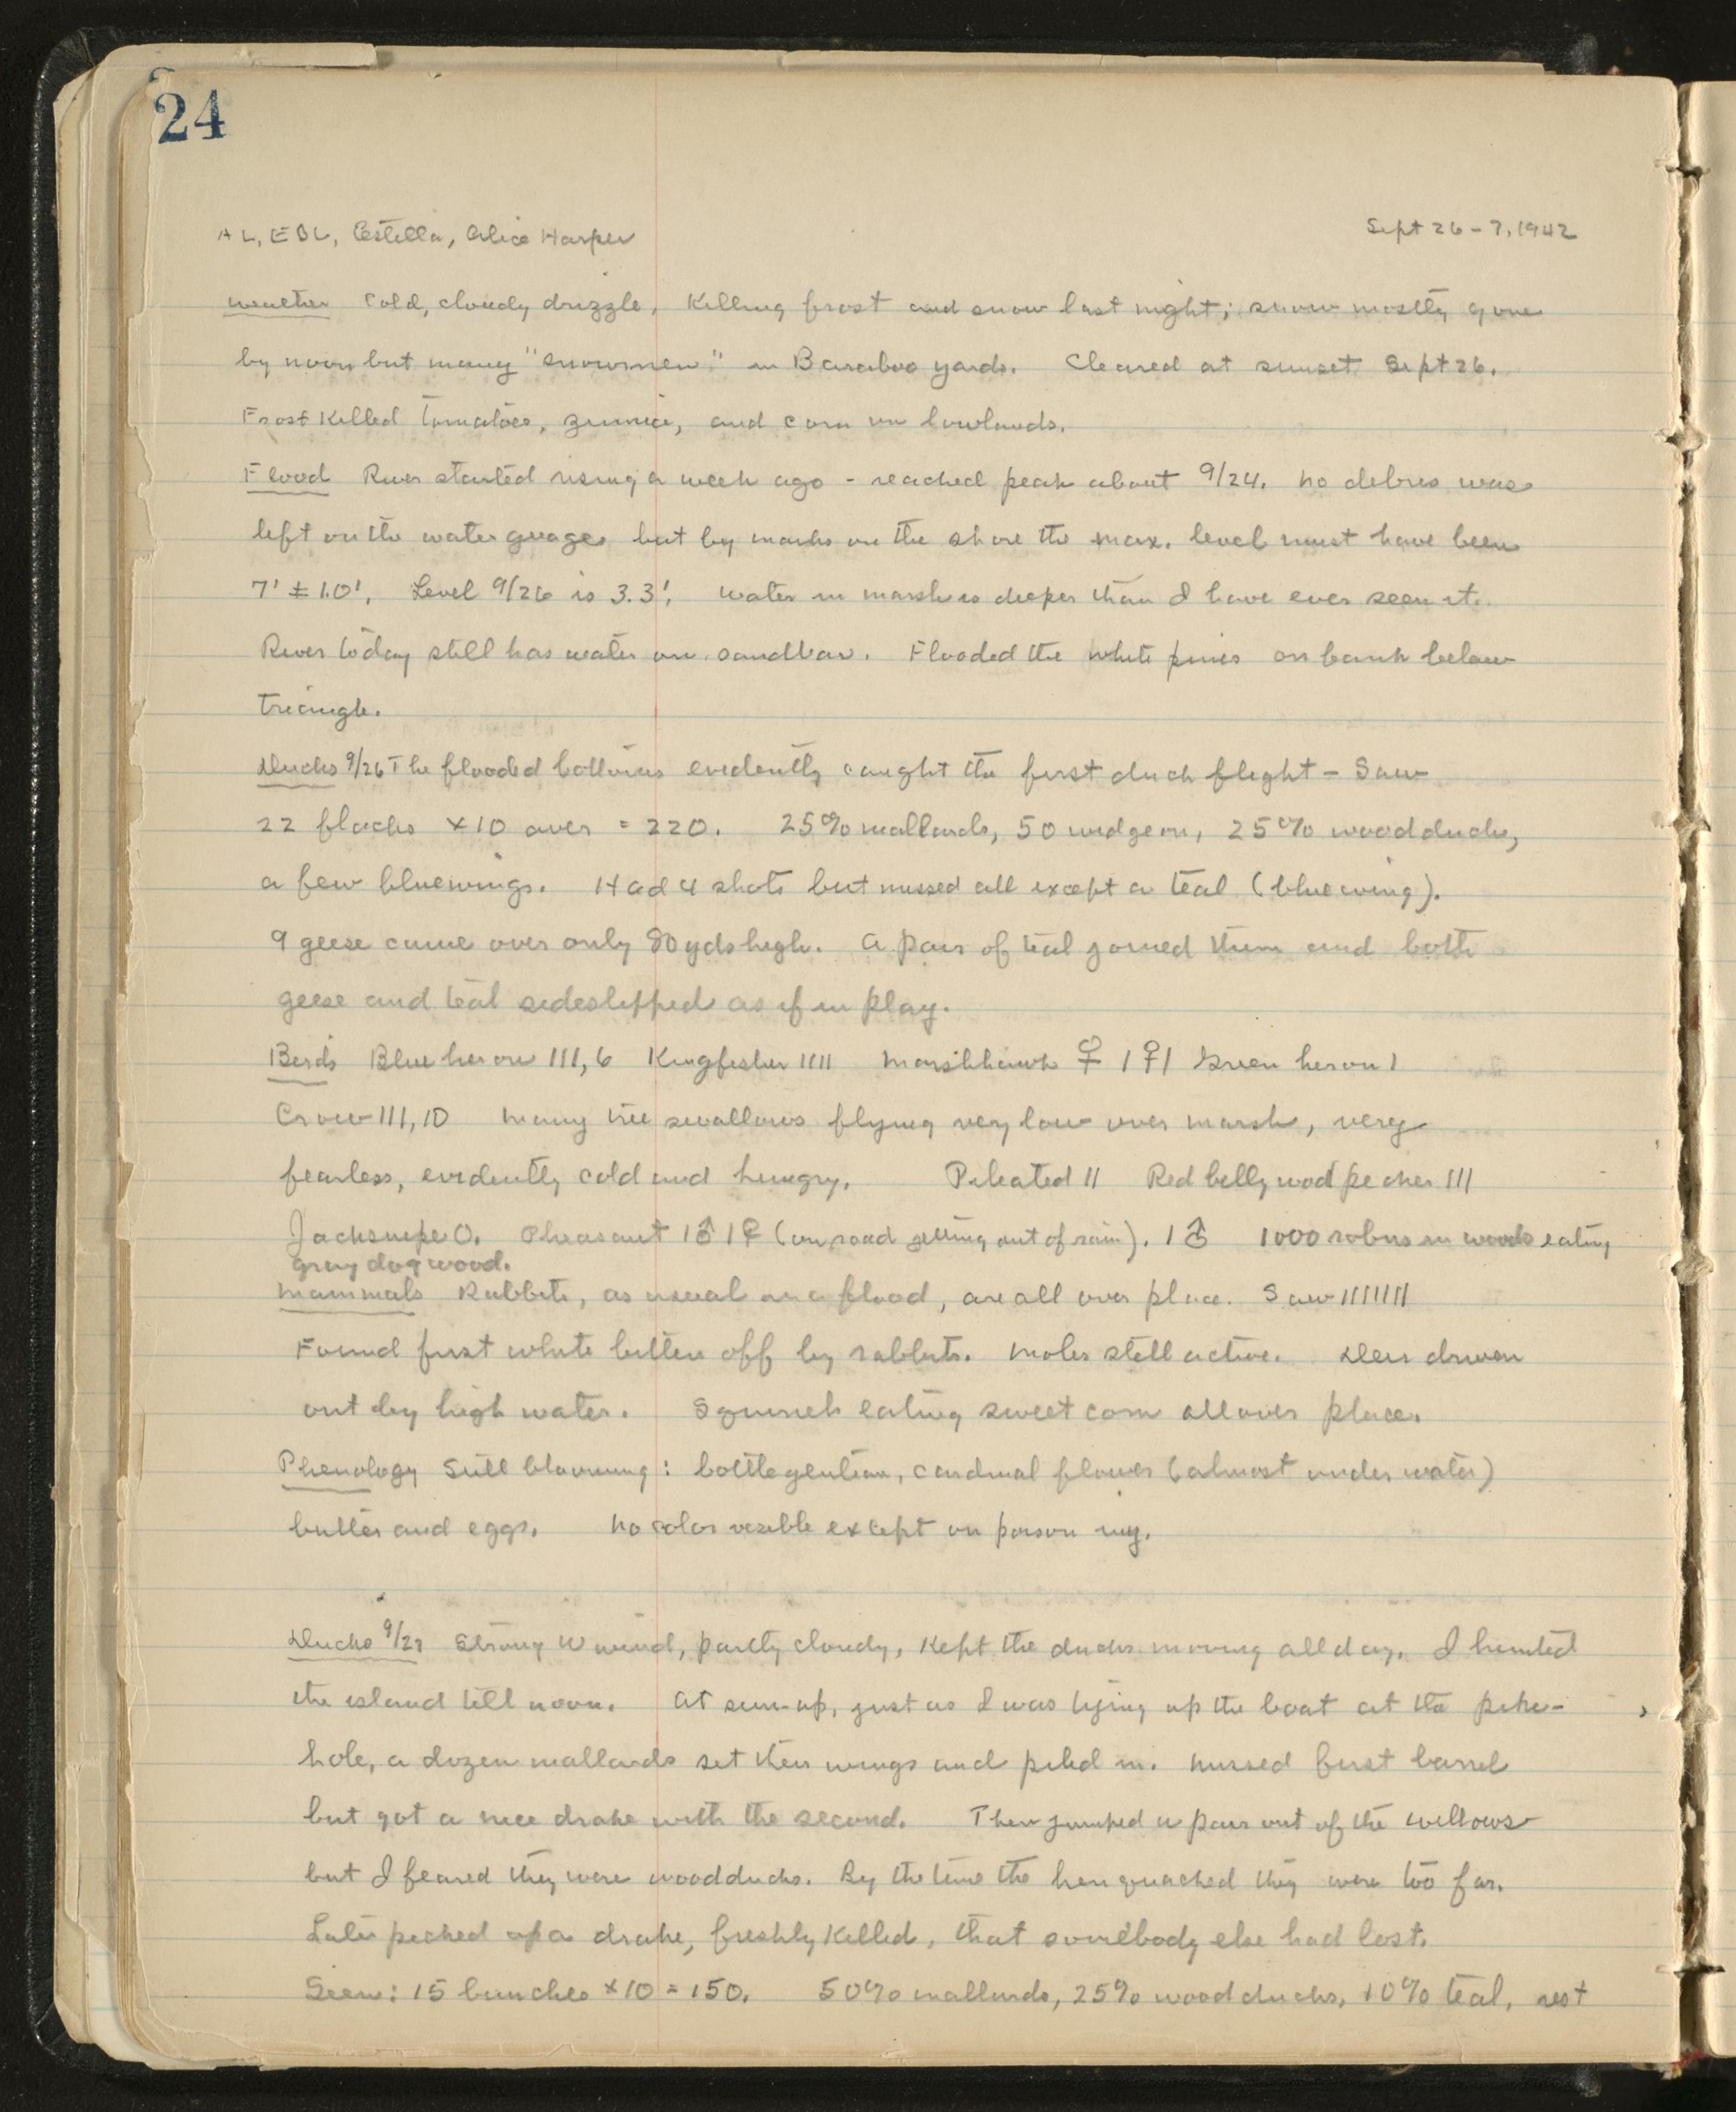 24
AL, EBL, Estella, Alice Harper Sept 26-7, 1942
Weather Cold, cloudy, drizzle, Killing frost and snow last night; snow mostly gone
by noon but many "snowmen" in Baraboo yards. Cleared at sunset Sept 26.
Frost killed tomatoes, zinnia, and corn on lowlands.
Flood River started rising a week ago - reached peak about 9/24. No debris was
left on the water guage but by marks on the shore the max. level must have been
7' ± 1.0'. Level 9/26 is 3.3'. Water in marsh is deeper than I have ever seen it.
River today still has water on sandbar. Flooded the white pines on bank below
triangle.
Ducks 9/26 The flooded bottoms evidently caught the first duck flight - Saw
22 flocks x 10 aver = 220. 25% mallards, 50 widgeon, 25% wood ducks,
a few bluewings. Had 4 shots but missed all except a teal (bluewing).
9 geese came over only 80 yds high. A pair of teal joined them and both
geese and teal sideslipped as if in play.
Birds Blue heron III, 6 Kingfisher IIII Marshhawk ♀ I ♀ I Green heron I
Crow III, 10 Many tree swallows flying very low over marsh, very
fearless, evidently cold and hungry. Pileated II Red belly woodpecker III
Jacksnipe 0. Pheasant 1♂ 1♀ (on road getting out of rain). 1♂ 1000 robins in woods eating
gray dogwood.
Mammals Rabbits, as usual in a flood, are all over place. Saw IIIIIII
Found first white bitten off by rabbits. Moles still active. Deer driven
out by high water. Squirrels eating sweet corn all over place.
Phenology Still blooming: bottle gentian, cardinal flower (almost under water)
butter and eggs. No color visible except on poison ivy.
Ducks 9/27 Strong W wind, partly cloudy, kept the ducks moving all day. I hunted
the island till noon. At sun-up, just as I was tying up the boat at the pike-
hole, a dozen mallards set their wings and piled in. Missed first barrel
but got a nice drake with the second. Then jumped a pair out of the willows
but I feared they were woodducks. By the time the hen quacked they were too far.
Later picked up a drake, freshly killed, that somebody else had lost.
Seen: 15 bunches x 10 = 150. 50% mallards, 25% wood ducks, 10% teal, rest